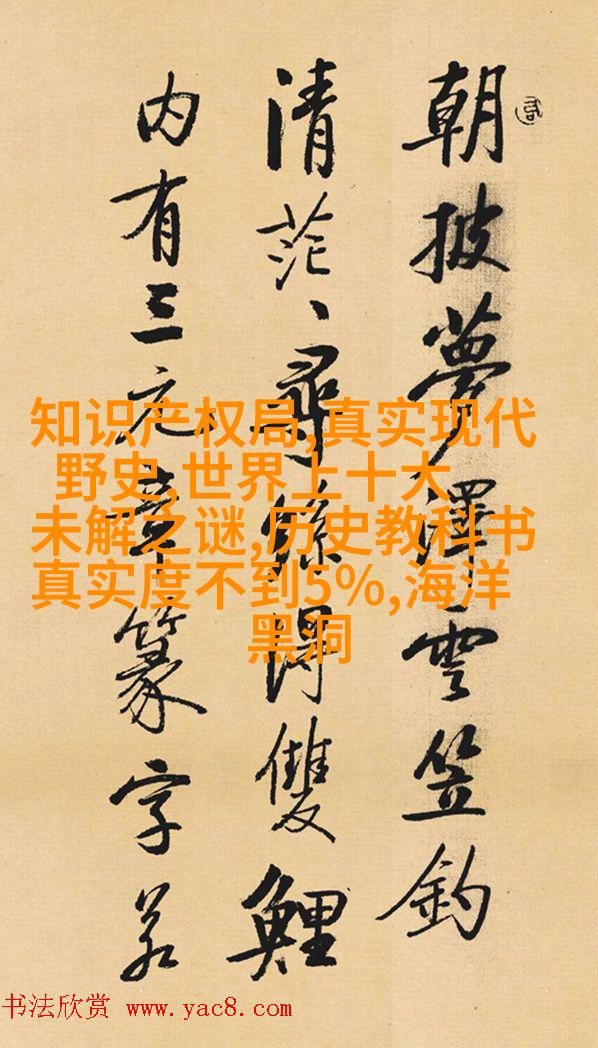 朝披夢澤雲笠釣
清茫、尋絲得雙鯉
内有三元章篆字若
知识产权局,真实现代
野史,世界上十大
未解之谜,历史教科书
真实度不到5%,海洋
黑洞
书法欣赏 www.yac8.com